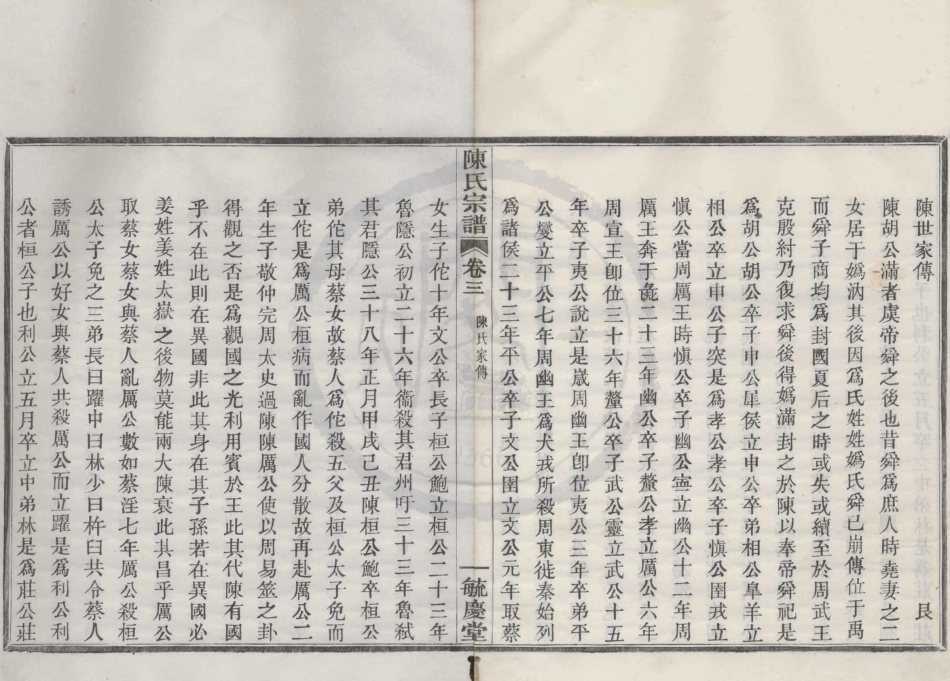 陳世家傳
陳胡公滿者虞帝舜之後也昔舜爲庶人時堯妻之二
女居于嬀汭其後因爲氏姓姓嬀氏舜已崩傳位于禹
而舜子商均爲封國夏后之時或失或續至於周武王
克殷紂乃復求舜後得嬀滿封之於陳以奉帝舜祀是
爲胡公胡公卒子申公犀侯立申公卒弟相公臯羊立
相公卒立申公子突是爲孝公孝公卒子愼公圉戎立
愼公當周厲王時愼公卒子幽公寧立幽公十二年周
厲王奔于彘二十三年幽公卒子釐公孝立厲公六年
周宣王卽位三十六年釐公卒子武公靈立武公十五
年卒子夷公說立是歲周幽王卽位夷公三年卒弟平
公燮立平公七年周幽王爲犬戎所殺周東徙秦始列
爲諸侯二十三年平公卒子文公圉立文公元年取蔡
陳氏宗譜
卷三
陳氏家傳
毓慶堂
女生子佗十年文公卒長子桓公鮑立桓公二十三年
魯隱公初立二十六年衞殺其君州吁三十三年魯弑
其君隱公三十八年正月甲戌己丑陳桓公鮑卒桓公
弟佗其母蔡女故蔡人爲佗殺五父及桓公太子免而
立佗是爲厲公桓病而亂作國人分散故再赴厲公二
年生子敬仲完周太史過陳陳厲公使以周易筮之卦
得觀之否是爲觀國之光利用賓於王此其代陳有國
乎不在此則在異國非此其身在其子孫若在異國必
姜姓姜姓太嶽之後物莫能兩大陳衰此其昌乎厲公
取蔡女蔡女與蔡人亂厲公數如蔡淫七年厲公殺桓
公太子免之三弟長曰躍中曰林少曰杵臼共令蔡人
誘厲公以好女與蔡人共殺厲公而立躍是爲利公利
公者桓公子也利公立五月卒立中弟林是爲莊公莊